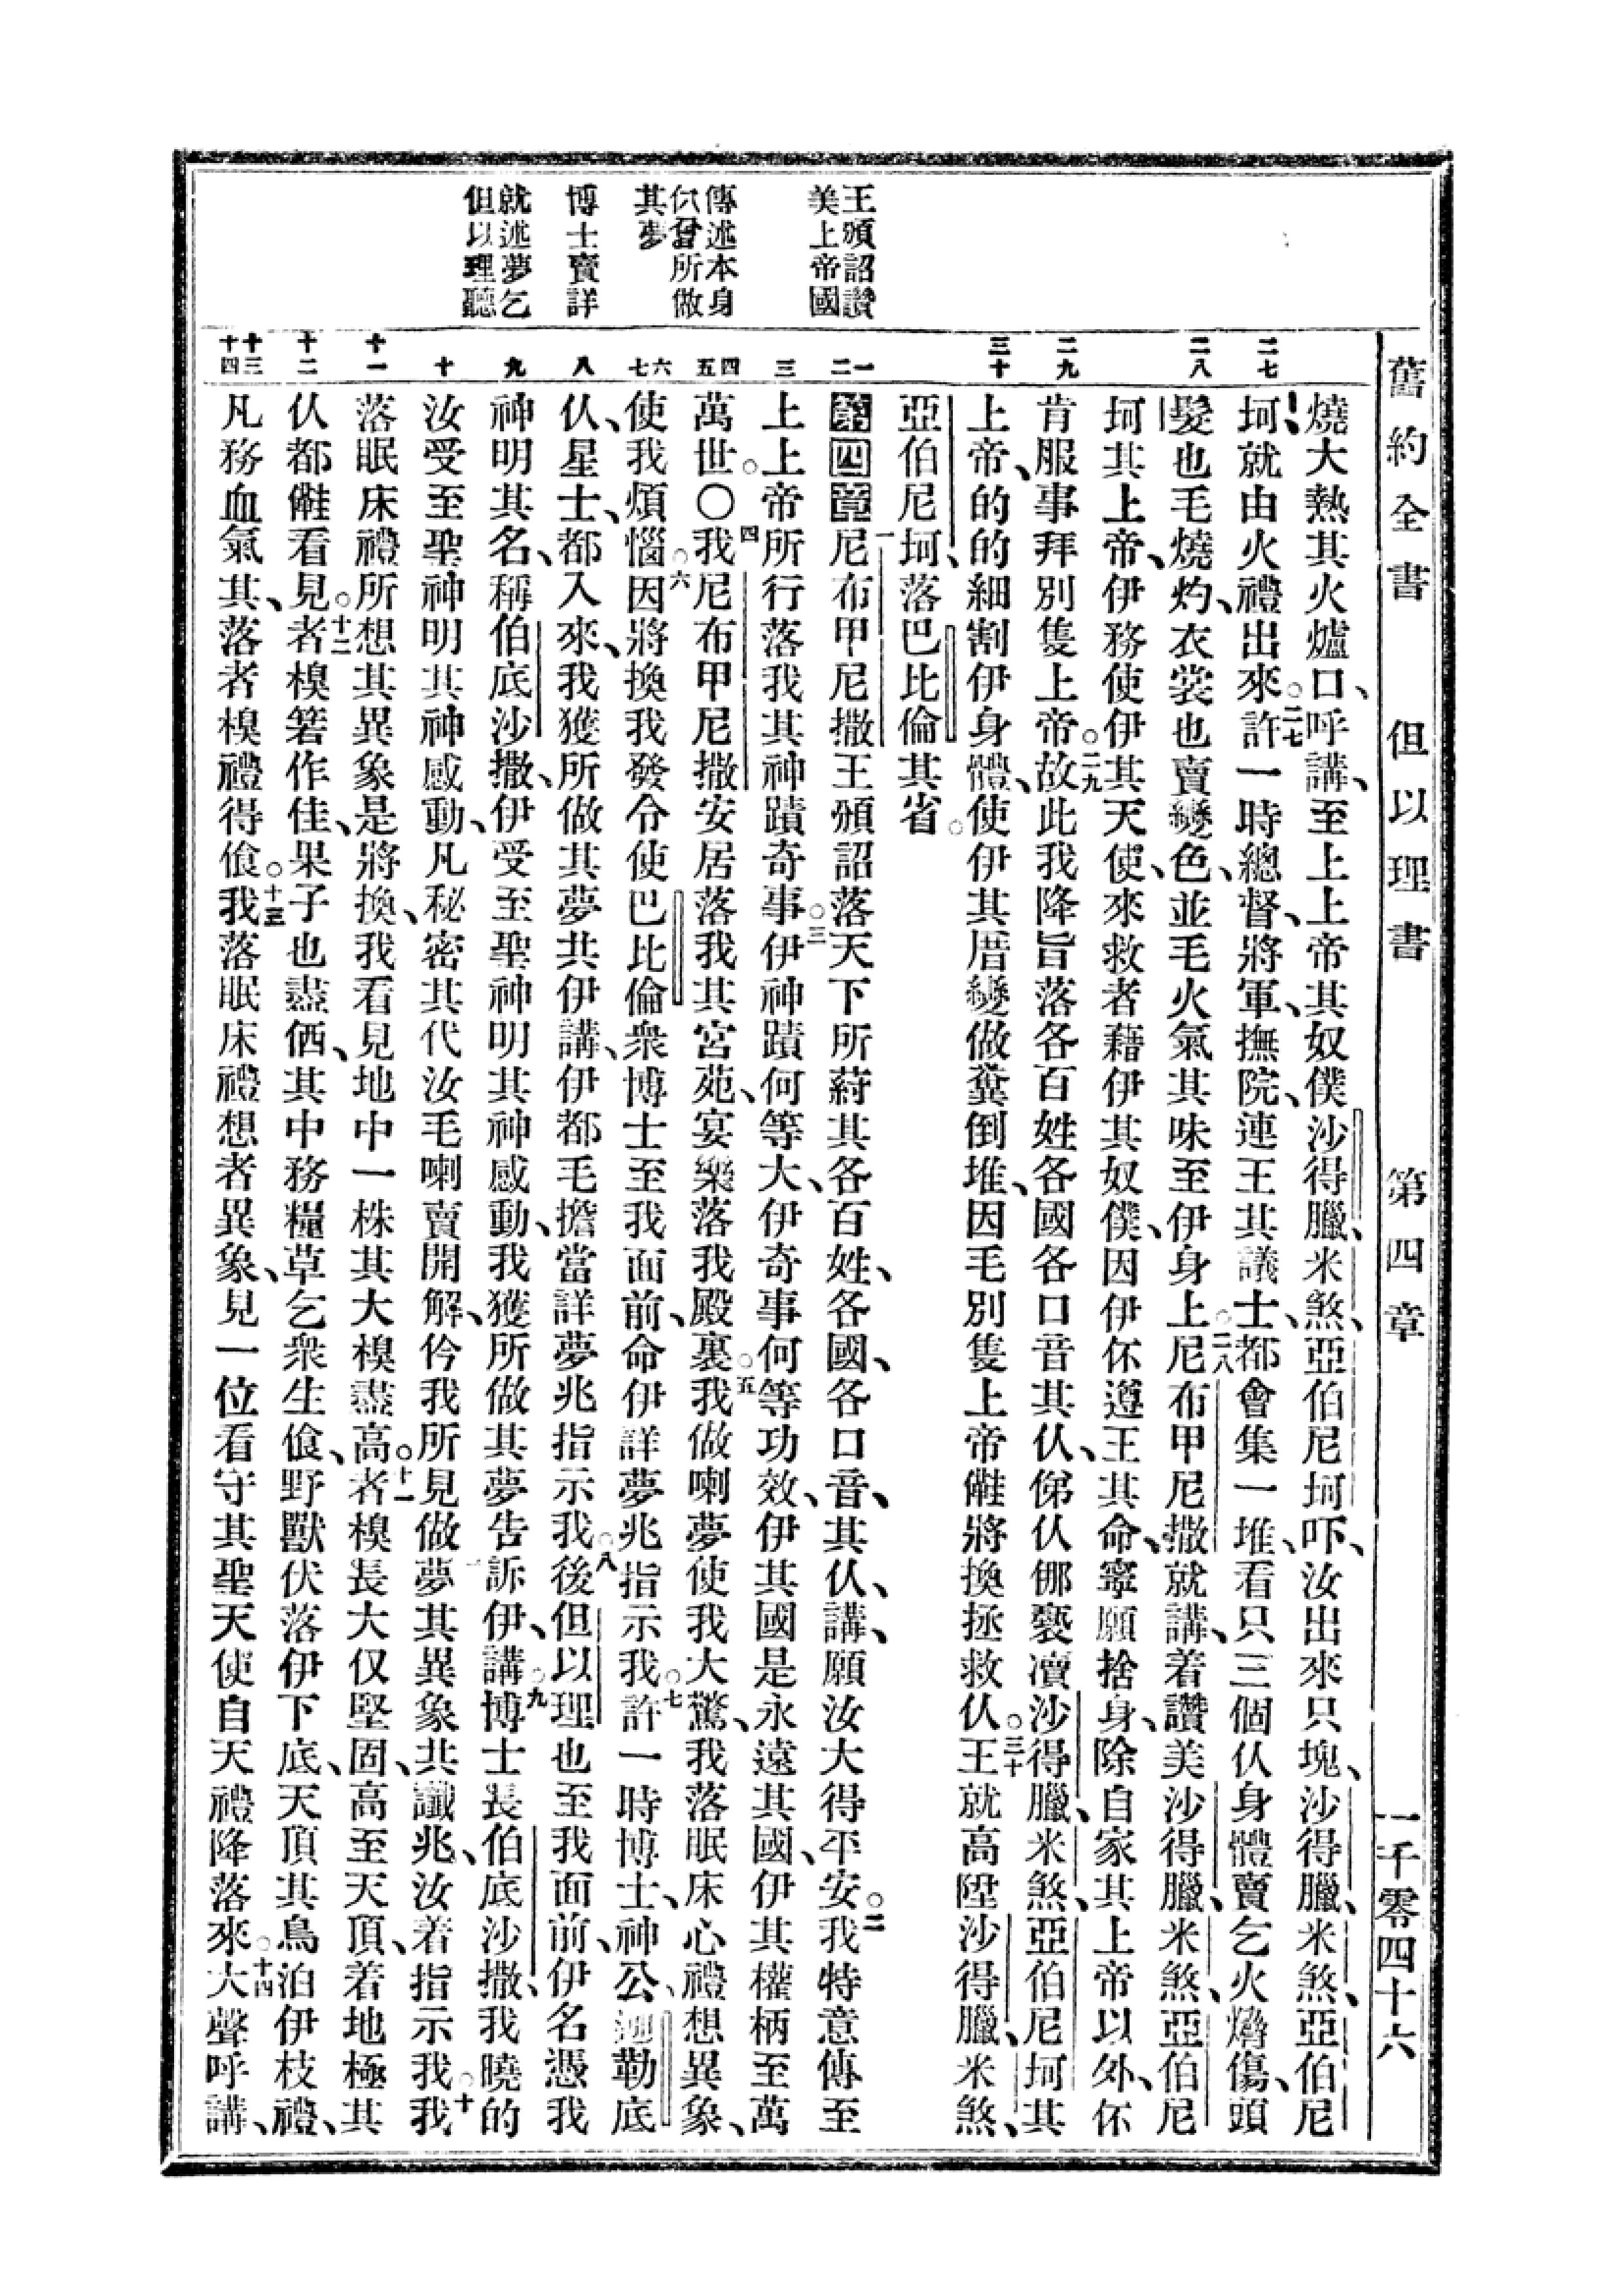 舊約全書 但以理書 第四章 一千零四十六
王頒詔讚
美上帝國
傳述本身
仈曾所做
其夢
博士賣詳
就述夢乞
但以理聽
二七
二八
二九
三十
一
二
三
四
五
六
七
八
九
十
十一
十二
十三
十四
燒大熱其火爐口、呼講、至上上帝其奴僕沙得臘、米煞、亞伯尼坷吓、汝出來只塊、沙得臘、米煞、亞伯尼
坷、就由火禮出來。二七許一時總督、將軍、撫院、連王其議士、都會集一堆、看只三個仈身體賣乞火燐傷、頭
髮也毛燒灼、衣裳也賣變色、並毛火氣其味至伊身上。二八尼布甲尼撒就講、着讚美沙得臘、米煞、亞伯尼
坷其上帝、伊務使伊其天使、來救者藉伊其奴僕、因伊伓遵王其命、寧願捨身、除自家其上帝以外、伓
肯服事拜別隻上帝。二九故此我降旨落各百姓各國各口音其仈、俤仈㑚褻瀆沙得臘、米煞、亞伯尼坷其
上帝、的的細割伊身體、使伊其厝變做糞倒堆、因毛別隻上帝㒕將換拯救仈。三十王就高陞沙得臘、米煞、
亞伯尼坷、落巴比倫其省。
第四章一尼布甲尼撒王頒詔落天下所蒔其各百姓、各國、各口音、其仈、講、願汝大得平安。二我特意傳至
上上帝所行落我其神蹟奇事。三伊神蹟何等大、伊奇事何等功效、伊其國是永遠其國、伊其權柄至萬
萬世。〇四我尼布甲尼撒安居落我其宮苑、宴樂落我殿裏。五我做喇夢使我大驚、我落眠床心禮想異象、
使我煩惱。六因將換我發令使巴比倫衆博士至我面前、命伊詳夢兆指示我。七許一時博士、神公、迦勒底
仈、星士、都入來、我獲所做其夢共伊講、伊都毛擔當詳夢兆指示我。八後但以理也至我面前、伊名憑我
神明其名、稱伯底沙撒、伊受至聖神明其神感動、我獲所做其夢告訴伊、講。九博士長伯底沙撒、我曉的
汝受至聖神明其神感動、凡秘密其代汝毛喇賣開解、仱我所見做夢其異象共讖兆、汝着指示我。十我
落眠床禮所想其異象是將換、我看見地中一株其大模盡高。十一者模長大仅堅固、高至天頂、着地極其
仈都㒕看見。十二者模箬作佳、果子也盡価、其中務糧草乞衆生飱、野獸伏落伊下底、天頂其鳥泊伊枝禮、
凡務血氣其、落者模禮得飱。十三我落眠床禮想者異象、見一位看守其聖天使自天禮降落來。十四大聲呼講、